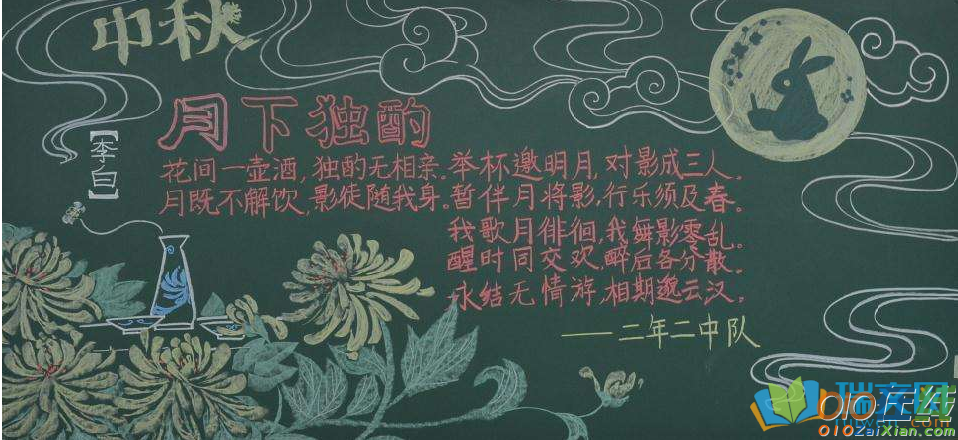 中秋
月下独酌
【李白】
花间一壶酒，独酌无相亲。举杯邀明月，对影成三人。
月既不解饮，影徒随我身。暂伴月将影，行乐须及春。
我歌月徘徊，我舞影零乱。
醒时同交欢，醉后各分散。
永结无情游，相期邈云汉。
——二年二中队
010在线
010ZaiXian.com